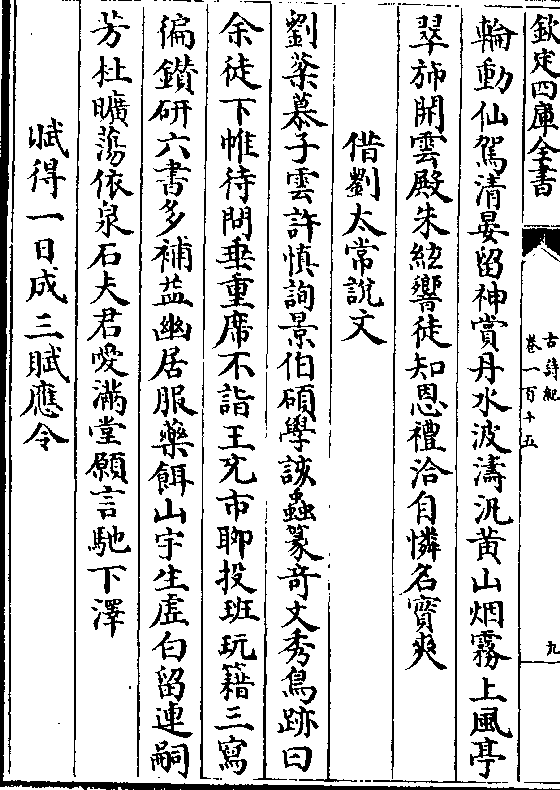 欽定四庫全書
古詩紀
卷一百十五
九
輪動仙駕清晏留神賞丹水波濤汎黄山烟霧上風亭
翠斾開雲殿朱絃響徒知恩禮洽自憐名實爽
借劉太常說文
劉棻慕子雲許慎詢景伯碩學該蟲篆奇文秀鳥跡曰
余徒下帷待問垂重席不詣王充市聊投班玩籍三寫
徧鑚研六書多補益幽居服藥餌山宇生虚白留連嗣
芳杜曠蕩依泉石夫君愛滿堂願言馳下澤
賦得一日成三賦應令